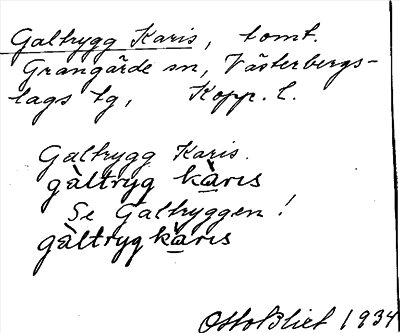 Galtrygg Karis, tomt.
Grangärde sn, Västerbergs-
lags tg, Kopp. l.
Galtrygg Karis.
gàltryg kàrıs
Se Galtryggen!
gàltryg kàrıs
Otto Blixt 1934